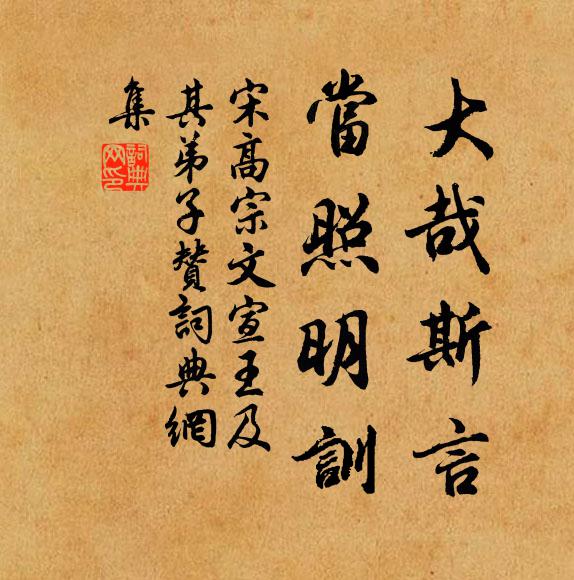 大哉斯言
當照明訓
宋高宗文宣王及
其弟子贊詞典網
集
詞典網印